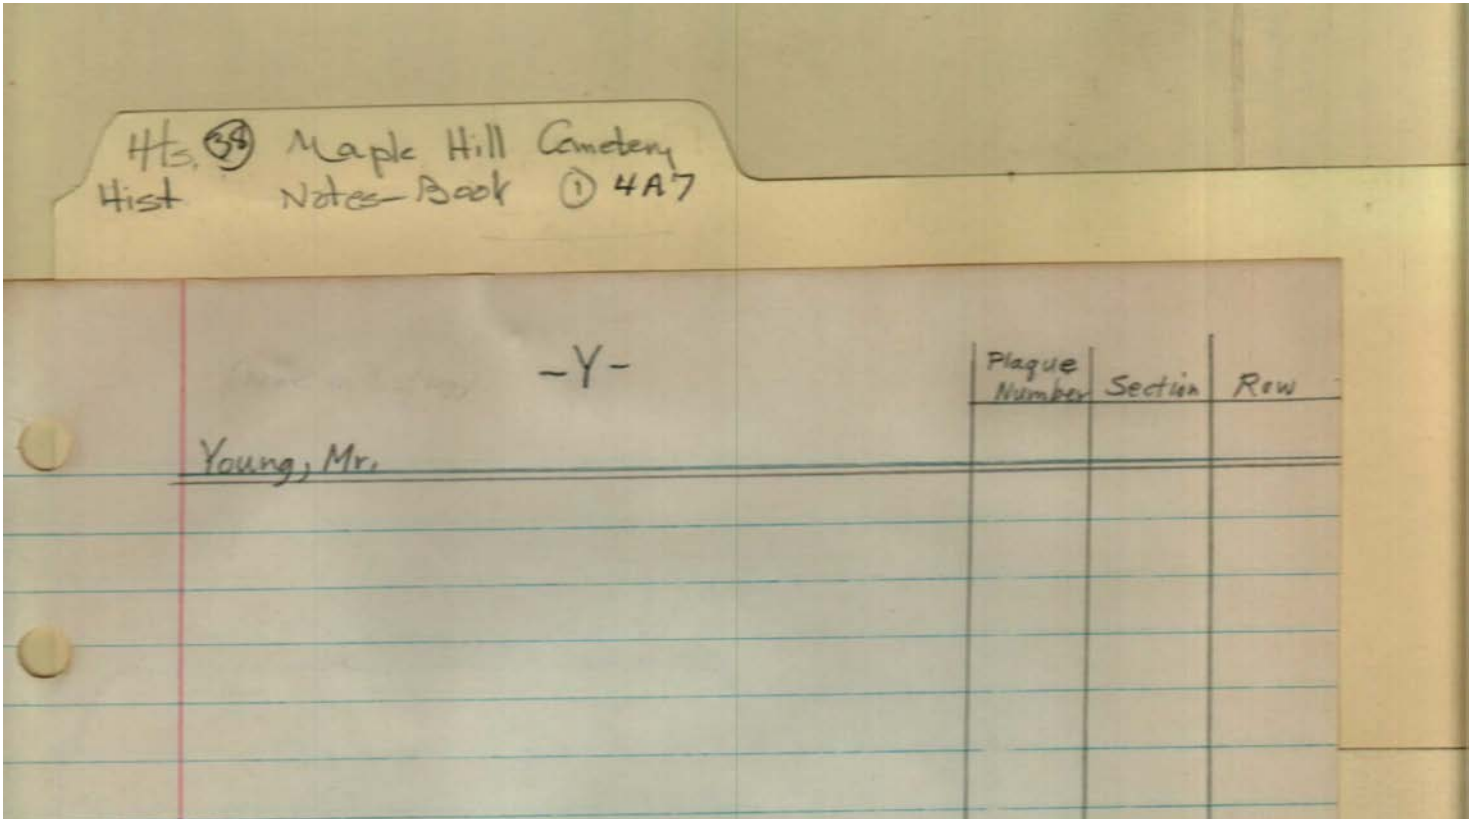 Hts. 38 Maple Hill Cemetery
Hist Notes-Book 1 4A7
-Y-
Plaque
Number Section Row
Young, Mr.